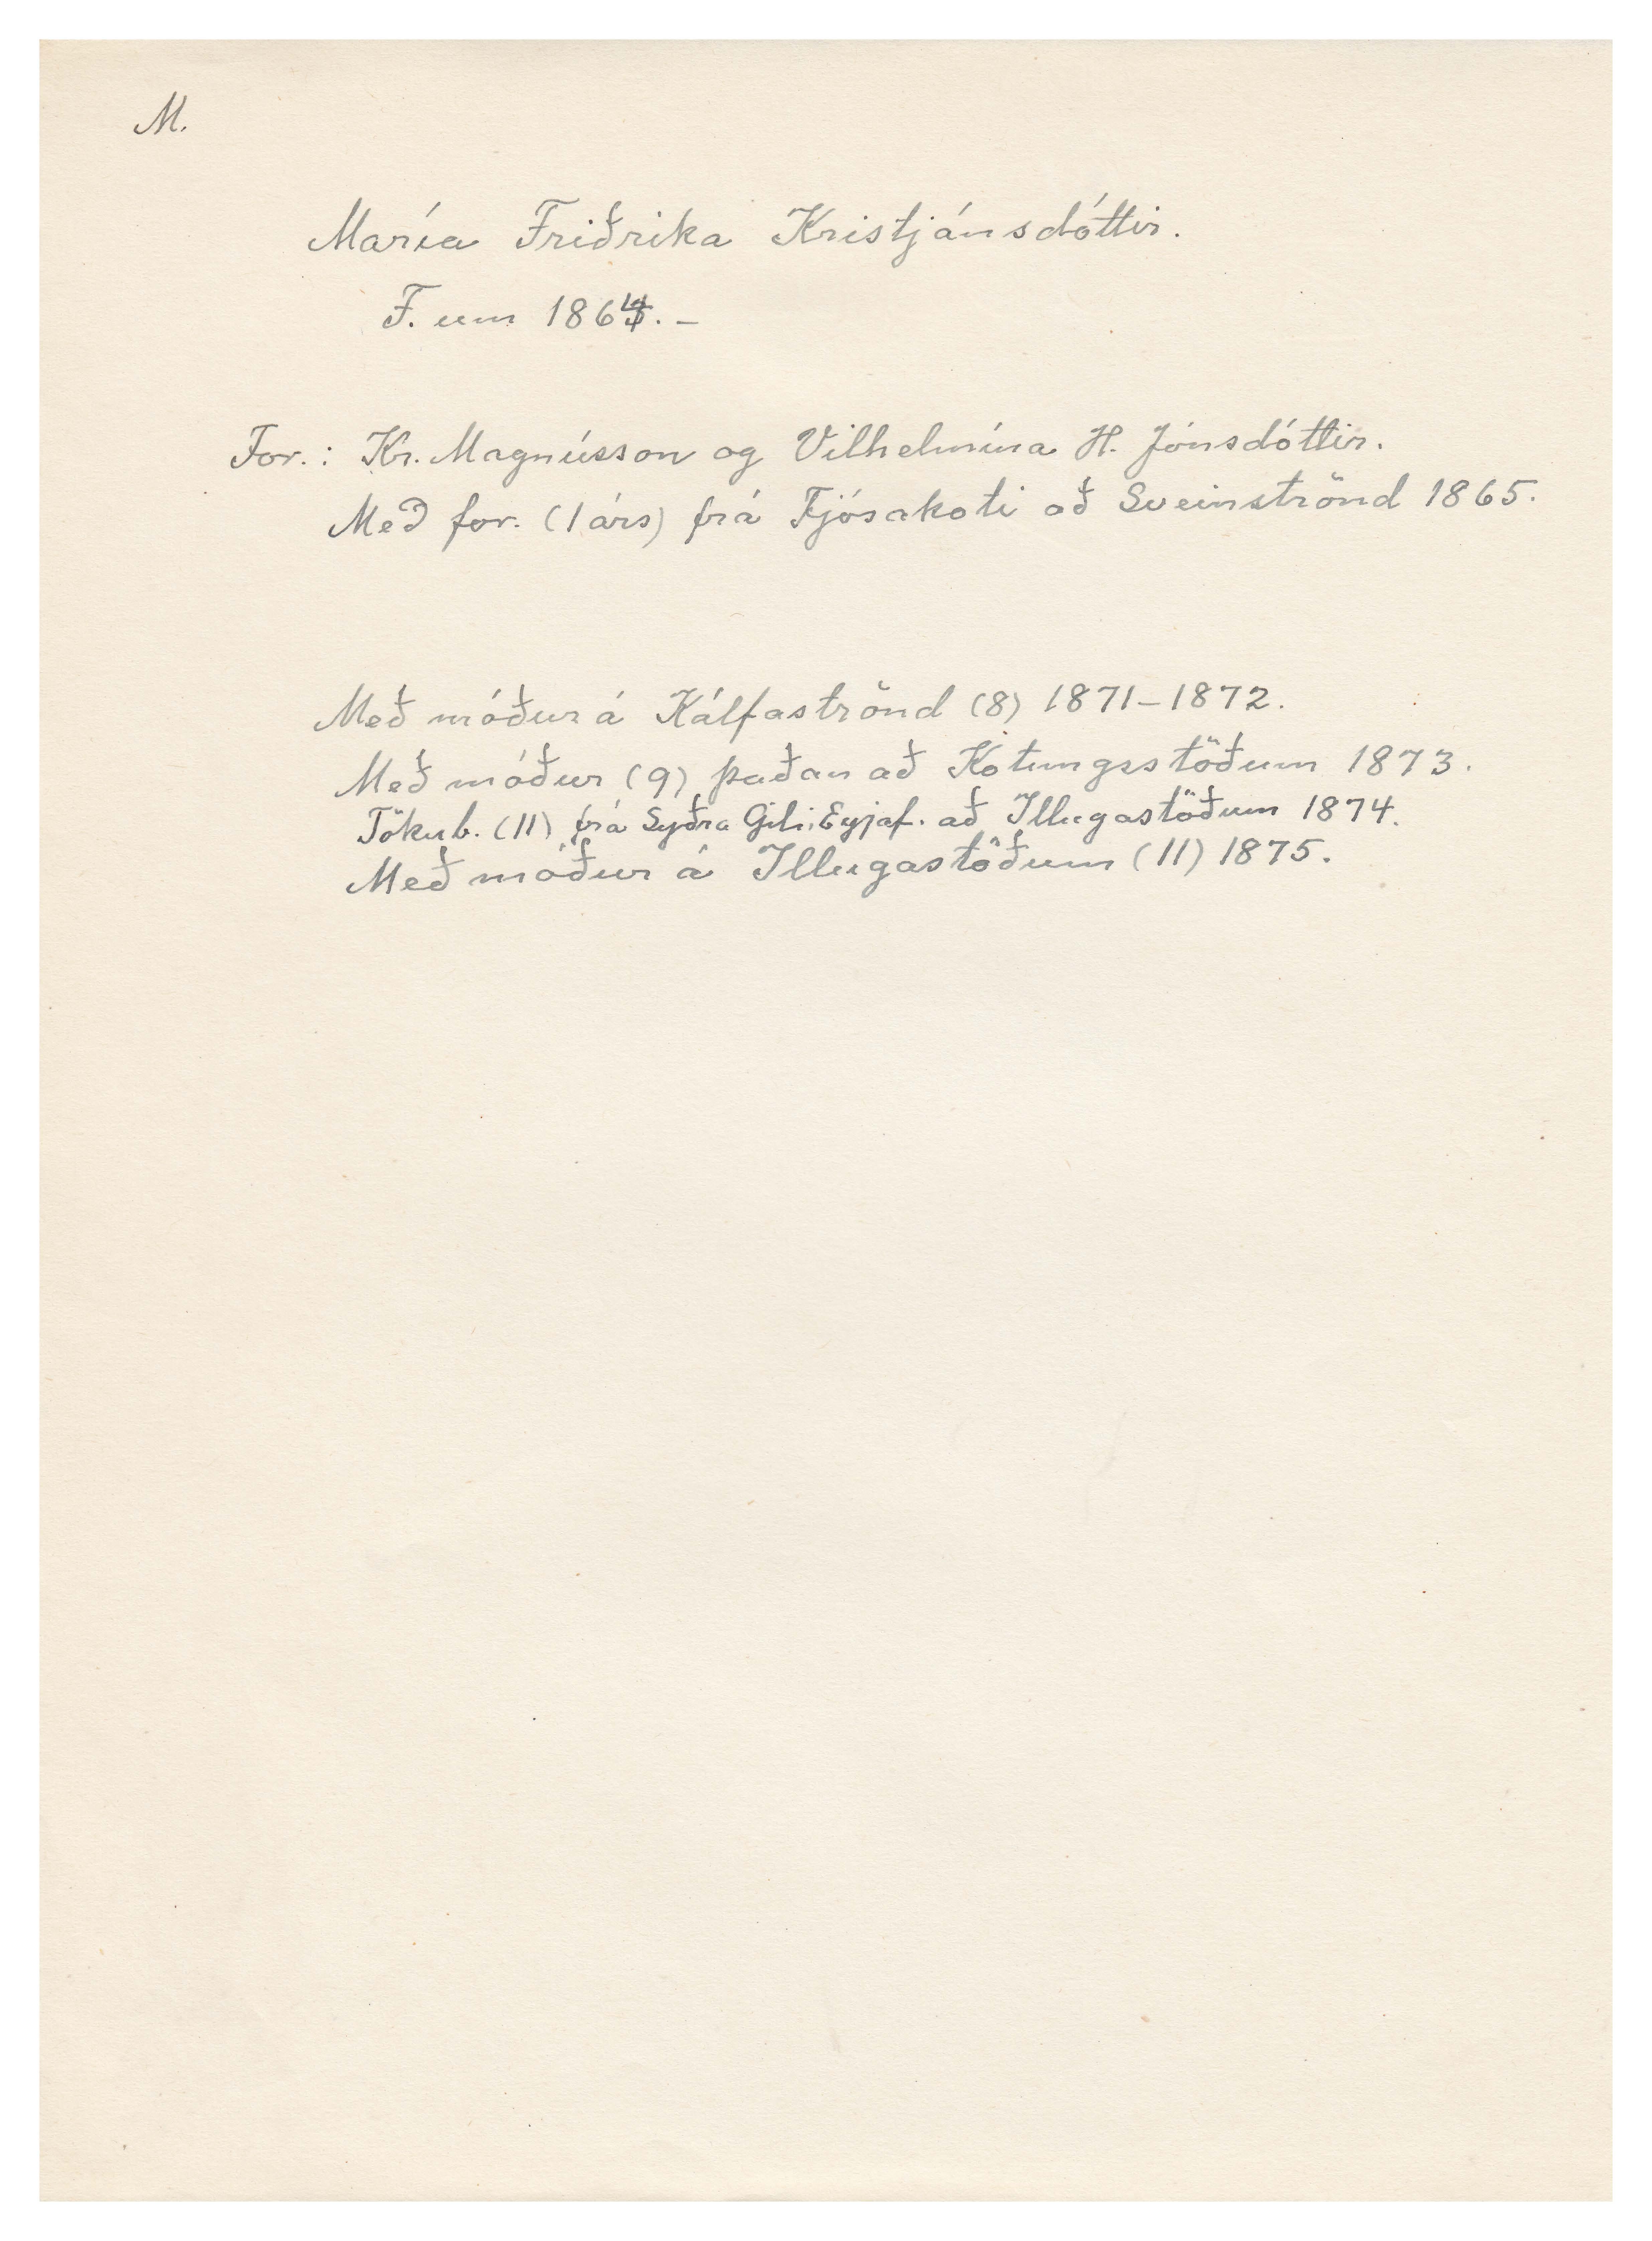 M.
María Friðrika Kristjánsdóttir.
F. um 1864. –
For.: Kr. Magnússon og Vilhelmína H. Jónsdóttir.
Með for. (1 árs) frá Fjósakoti að Sveinströnd 1865.
Með móður á Kálfaströnd (8) 1871–1872.
Með móður (9) þaðan að Kotungsstöðum 1873.
Tökub. (11) frá Syðra Gili, Eyjaf. að Illugastöðum 1874.
Með móður á Illugastöðum (11) 1875.